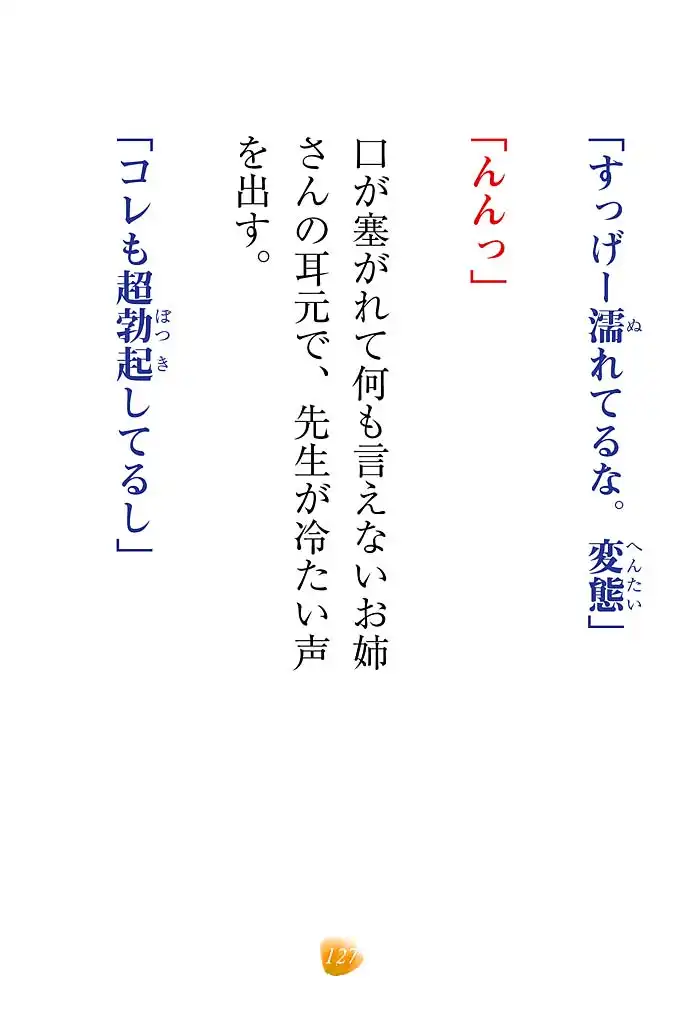 「すっげー濡れてるな。変態」
「んんっ」
口が塞がれて何も言えないお姉
さんの耳元で、先生が冷たい声
を出す。
「コレも超勃起してるし」
127